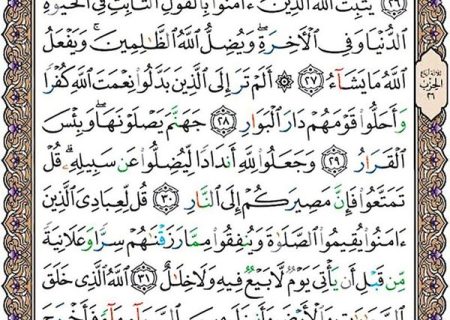 ٢٦ يُثَبِّتُ اللَّهُ الَّذِينَ ءَامَنُوا بِالْقَوْلِ الثَّابِتِ فِي الْحَيَوٰةِ
الدُّنْيَا وَفِي الْأَخِرَةِ ۖ وَيُضِلُّ اللَّهُ الظَّـٰلِمِينَ ۚ وَيَفْعَلُ
اللَّهُ مَا يَشَآءُ ٢٧ ۞ أَلَمْ تَرَ إِلَى الَّذِينَ بَدَّلُوا نِعْمَتَ اللَّهِ كُفْرًا
وَأَحَلُّوا قَوْمَهُمْ دَارَ الْبَوَارِ ٢٨ جَهَنَّمَ يَصْلَوْنَهَا ۖ وَبِئْسَ
الْقَرَارُ ٢٩ وَجَعَلُوا لِلَّهِ أَندَادًا لِّيُضِلُّوا عَن سَبِيلِهِ ۗ قُلْ
تَمَتَّعُوا فَإِنَّ مَصِيرَكُمْ إِلَى النَّارِ ٣٠ قُل لِّعِبَادِيَ الَّذِينَ
ءَامَنُوا يُقِيمُوا الصَّلَوٰةَ وَيُنفِقُوا مِمَّا رَزَقْنَـٰهُمْ سِرًّا وَعَلَانِيَةً
مِّن قَبْلِ أَن يَأْتِيَ يَوْمٌ لَّا بَيْعٌ فِيهِ وَلَا خِلَـٰلٌ ٣١ اللَّهُ الَّذِي خَلَقَ
الحزب
٢٦